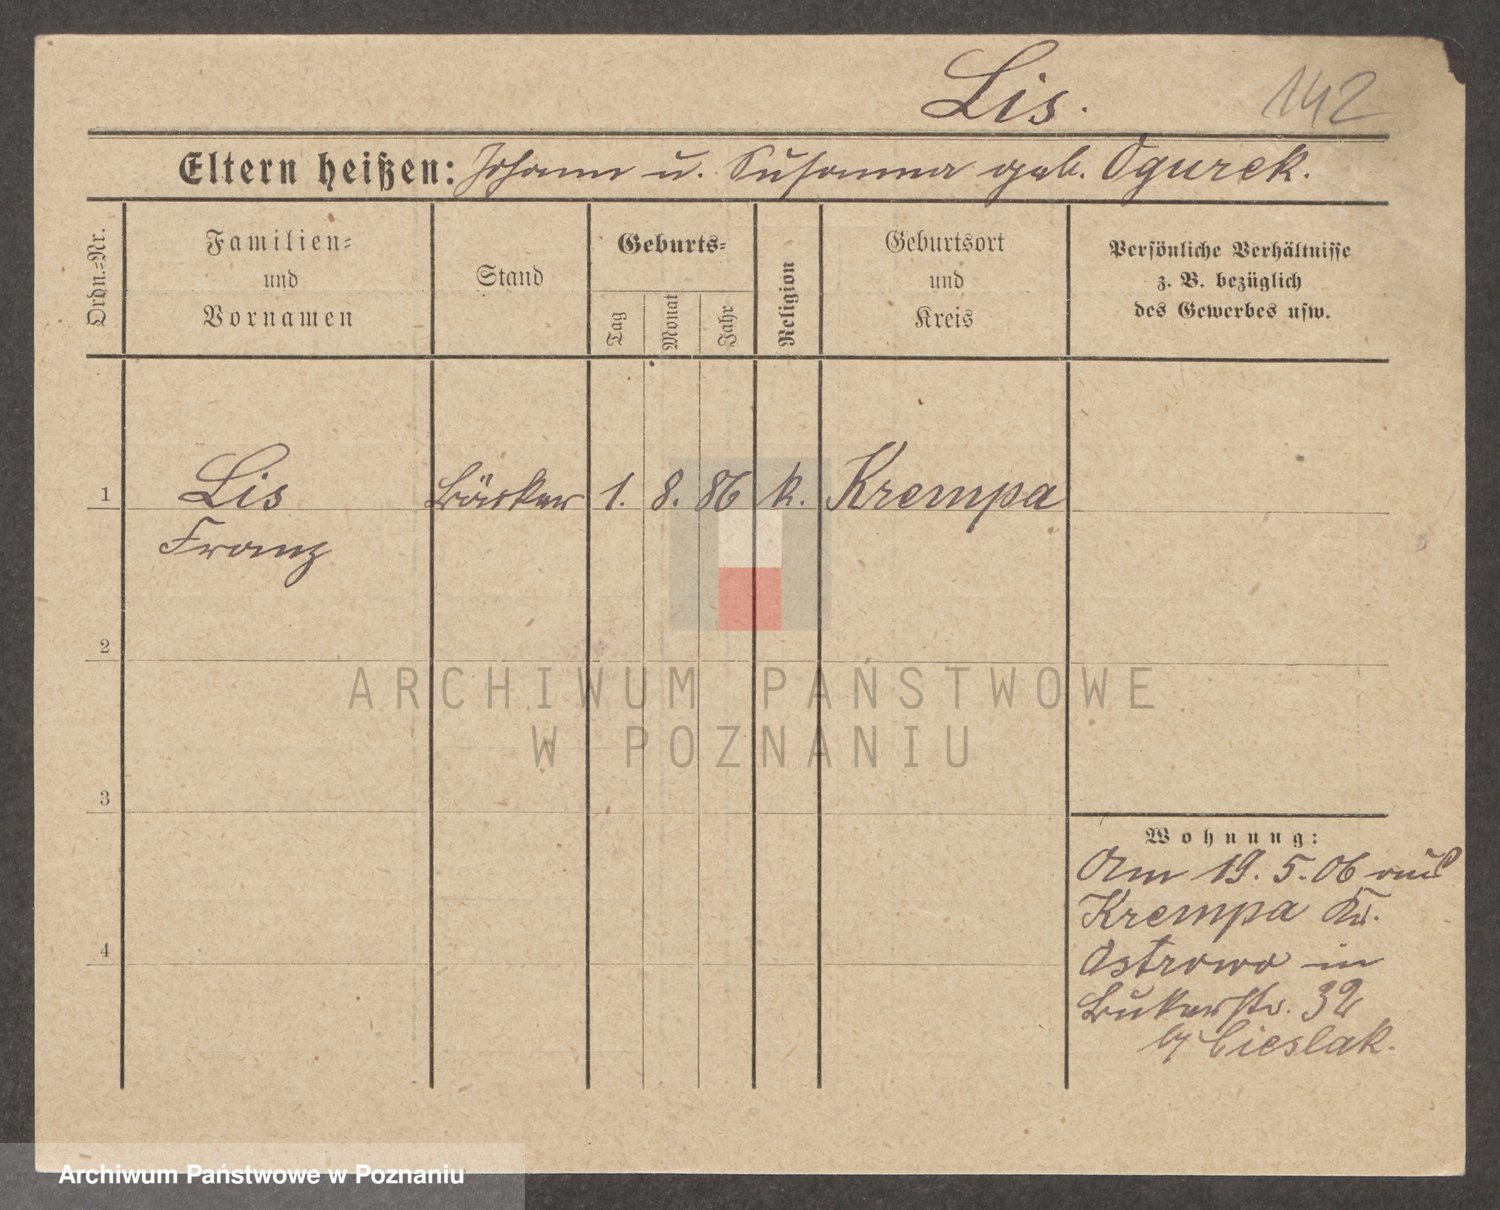 Lis. 142
Eltern heißen: Johann u. Susanna geb. Ogurek.
Ordn.=Nr.
Familien=
und
Vornamen
Stand
Geburts=
Tag
Monat
Jahr
Religion
Geburtsort
und
Kreis
Persönliche Verhältnisse
z. B. bezüglich
des Gewerbes usw.
1 Lis Bäcker 1. 8. 86 k. Krempa
Franz
2
3
4
Wohnung:
Am 19. 5. 06 aus
Krempa Kr.
Ostrowo in
Bukerstr. 32
b/ Cieslak.
ARCHIWUM PAŃSTWOWE
W POZNANIU
Archiwum Państwowe w Poznaniu